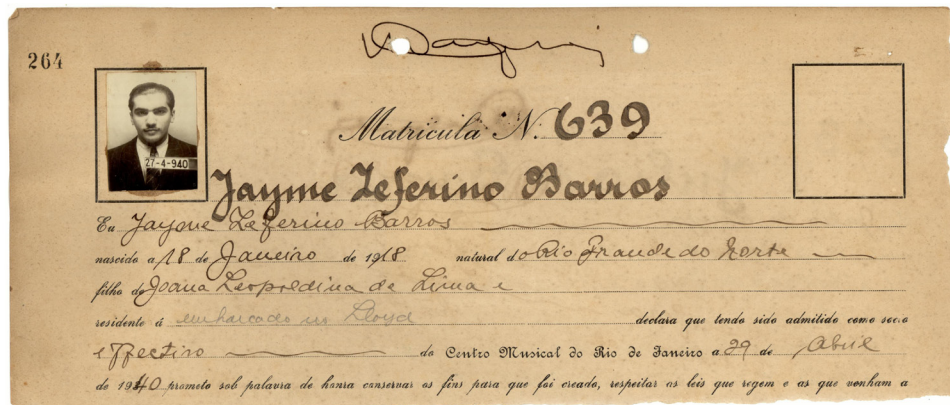 264
Matricula N. 639
27-4-940
Jayme Zeferino Barros
Eu Jayme Zeferino Barros
nascido a 18 de Janeiro de 1918 natural do Rio Grande do Norte
filho de Joana Leopoldina de Lima e
residente á embarcado no Lloyd declara que tendo sido admitido como socio
effectivo do Centro Musical do Rio de Janeiro a 29 de Abril
de 1940 prometo sob palavra de honra conservar os fins para que foi creado, respeitar as leis que regem e as que venham a